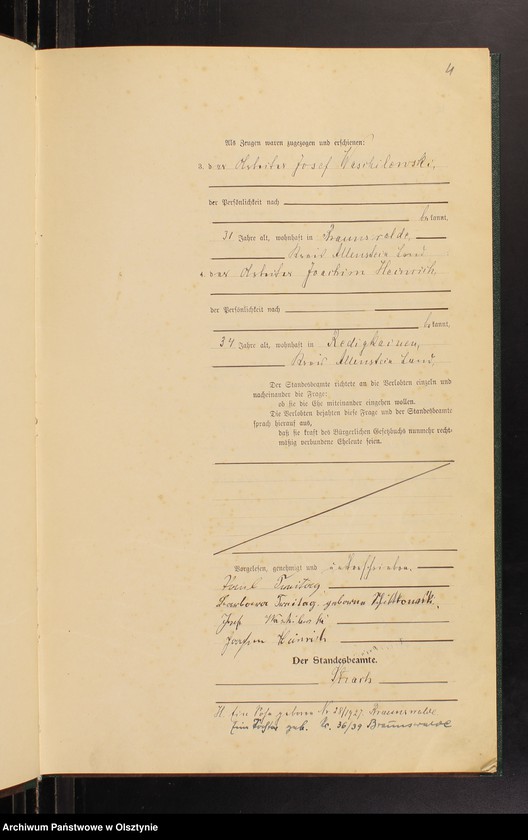 4
Als Zeugen waren zugezogen und erschienen:
3. der Arbeiter Josef Waschilowski,
der Persönlichkeit nach
be kannt,
31 Jahre alt, wohnhaft in Braunswalde,
Kreis Allenstein Land
4. der Arbeiter Joachim Heinrich
der Persönlichkeit nach
be kannt,
34 Jahre alt, wohnhaft in Redigkainen,
Kreis Allenstein Land,
Der Standesbeamte richtete an die Verlobten einzeln und
nacheinander die Frage:
ob sie die Ehe miteinander eingehen wollen.
Die Verlobten bejahten diese Frage und der Standesbeamte
sprach hierauf aus,
daß sie kraft des Bürgerlichen Gesetzbuchs nunmehr recht-
mäßig verbundene Eheleute seien.
Vorgelesen, genehmigt und unterschrieben.
Freitag
Barbara Freitag geborene
Josef
Joachim Heinrich
Der Standesbeamte.
geboren Nr 28/1927 Braunswalde
Eine Tochter geb. Nr. 36/39 Braunswalde
Archiwum Państwowe w Olsztynie
Archiwum Państwowe w Olsztynie